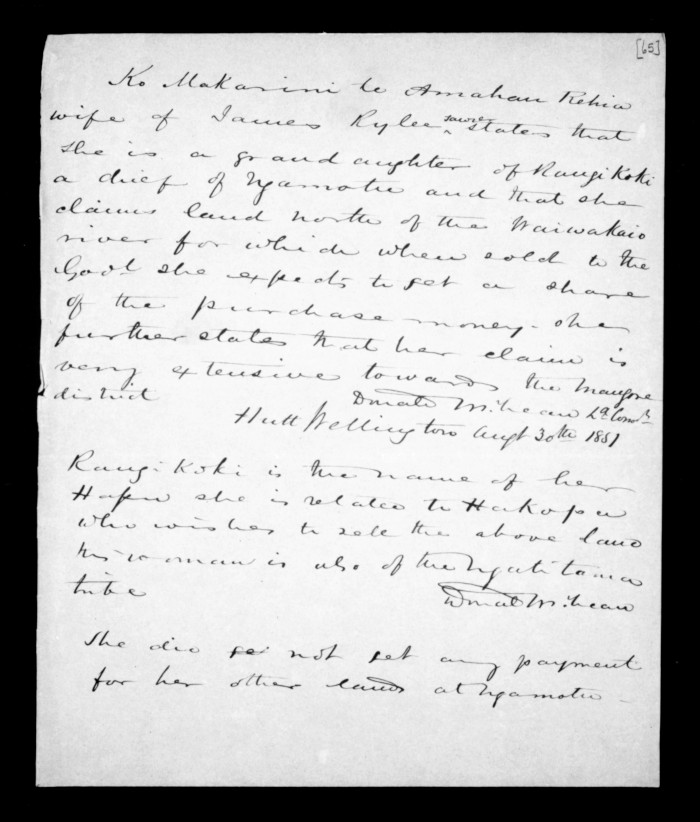 [65]
Ko Makarini te Amahau Rehia
wife of James Rylee ^sawyer states that
she is a grand daughter of Rangi Koki
a chief of Ngamotu and that she
claims land north of the Waiwakaio
river for which when sold to the
Govt she expects to get a share
of the purchase money. She
further states that her claim is
very extensive towards the Mangore
district
Donald McLean Ld. Comr.
Hutt Wellington Augt 30th 1851
Rangi Koki is the name of her
Hapu she is related to Hakopa
who wishes to sell the above land
this woman is also of the Ngatitama
tribe
Donald McLean
She did not get any payment
for her other lands at Ngamotu -